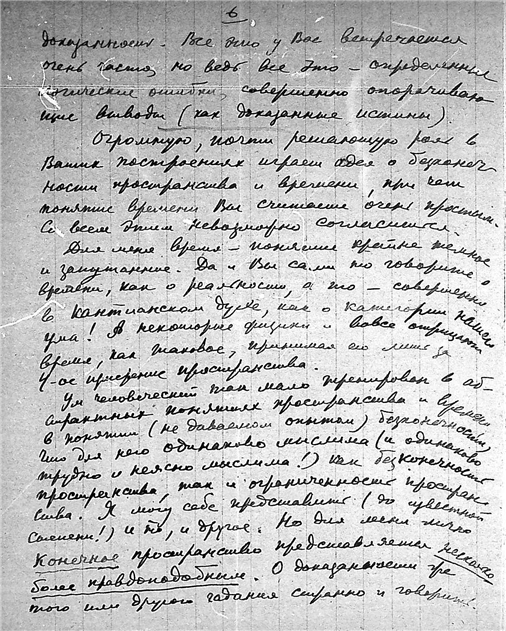 6
доказанности. Все это у Вас встречается
очень часто, но ведь все это – определенные
логические ошибки, совершенно опорачиваю-
щие выводы (как доказанные истины)
Огромную, почти решающую роль в
Ваших построениях играет идея о безконеч-
ности пространства и времени, при чем
понятие времени Вы считаете очень простым.
Со всем этим невозможно согласиться.
Для меня время – понятие крайне темное
и запутанное. Да и Вы сами то говорите о
времени, как о реальности, а то – совершенно
в кантианском духе, как о категории нашего
ума! А некоторые физики и вовсе отрицают
время, как таковое, принимая его лишь за
4-ое измерение пространства.
Ум человеческий так мало тренирован в аб-
страктных понятиях пространства и времени
в понятии (не даваемом опытом) безконечности,
что для него одинаково мыслима (и одинаково
трудно и неясно мыслима!) как безконечность
пространства, так и ограниченность простран-
ства. Я могу себе представить (до известной
степени!) и то, и другое. Но для меня лично
конечное пространство представляется несколько
более правдоподобным. О доказанности
того или другого гадания странно и говорить.